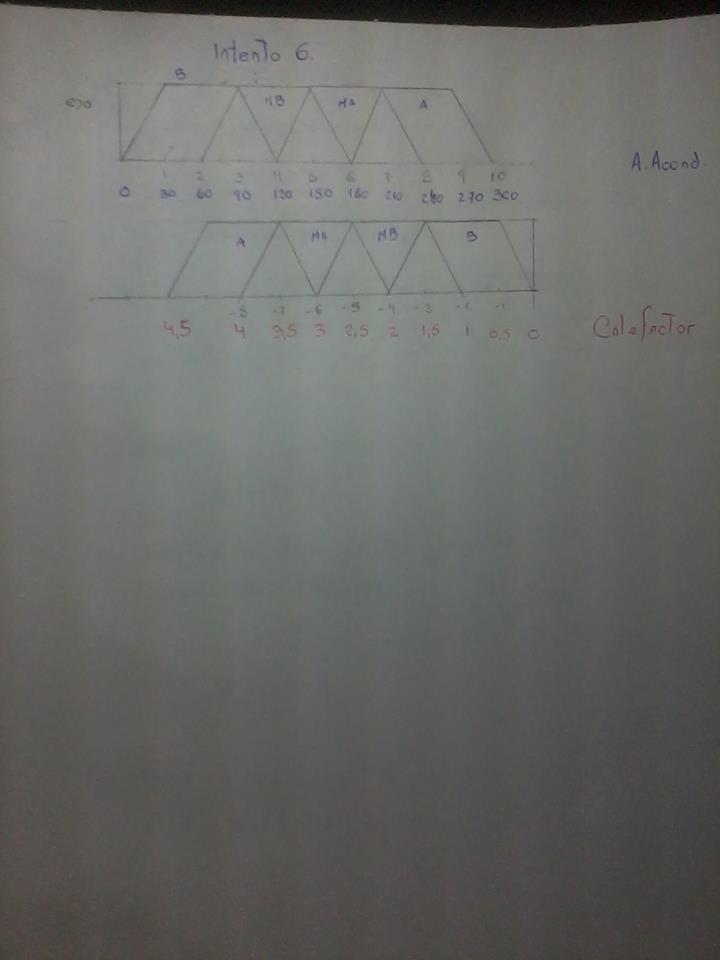 Intento 6.
B
MB MA A
A. Acond.
1 2 3 4 5 6 7 8 9 10
0 30 60 90 120 150 180 210 240 270 300
A MA MB B
-8 -7 -6 -5 -4 -3 -2 -1
4,5 4 3,5 3 2,5 2 1,5 1 0,5 0
Calefactor